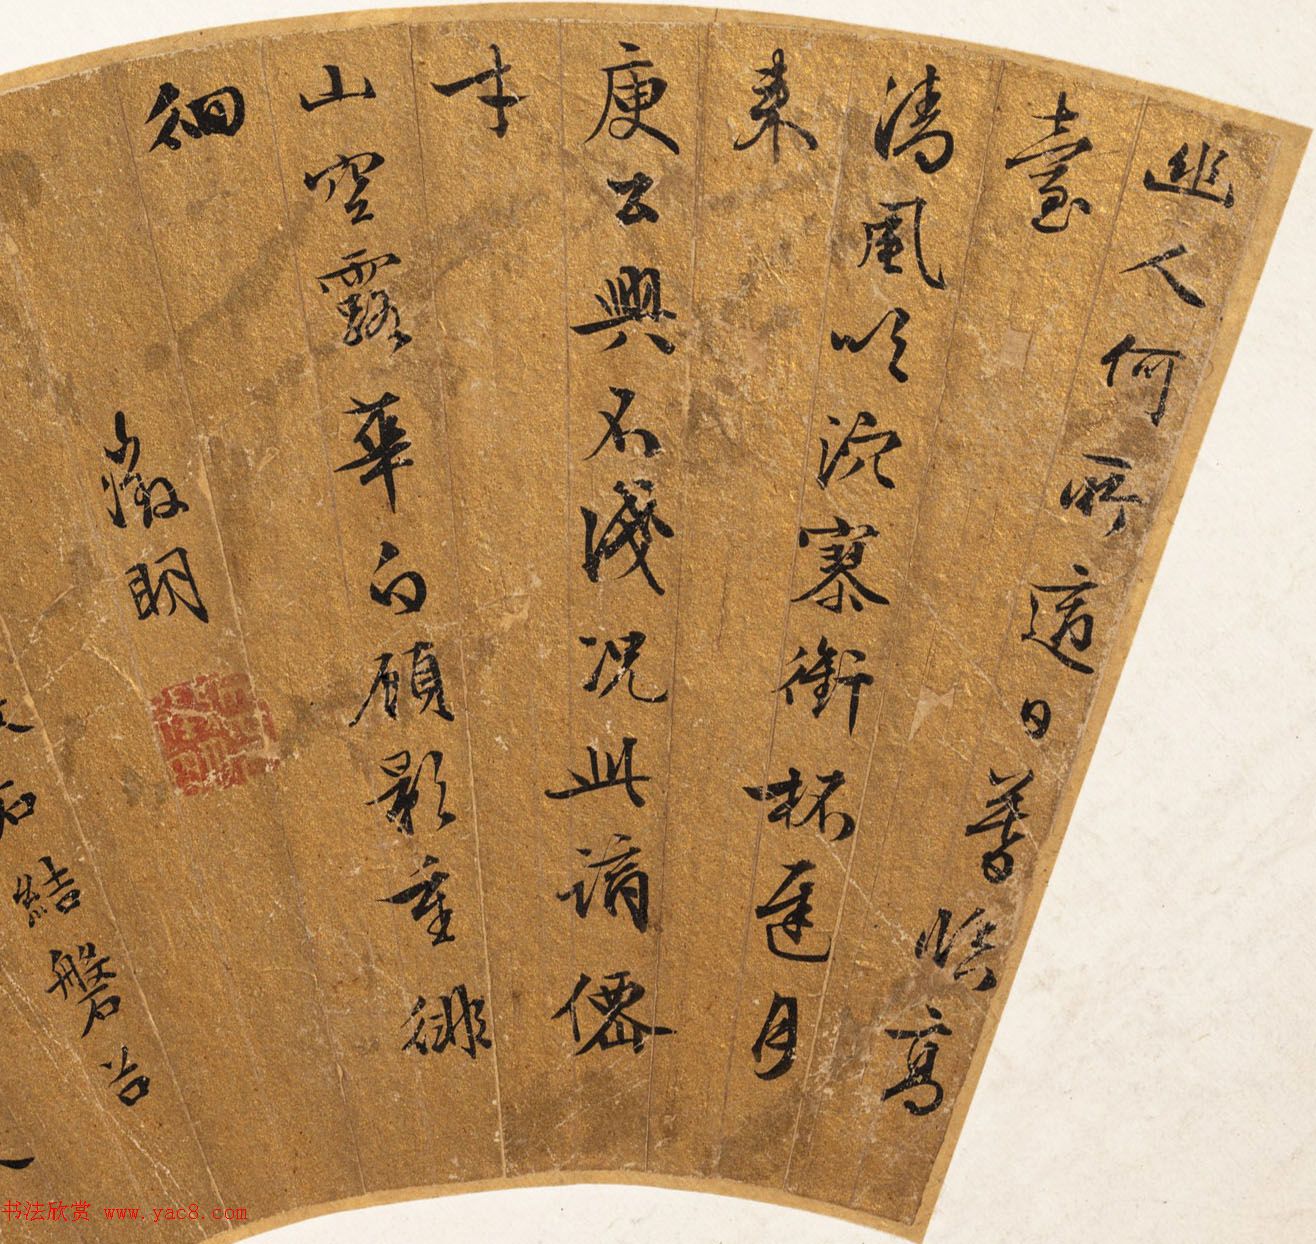 幽人何所適日暮臨高
臺
清風吹沉寥銜杯遲月
來
庾公興不淺況此謫僊
才
山空露華白顧影重徘
徊
徵明
石結磐
书法欣赏 www.yac8.com